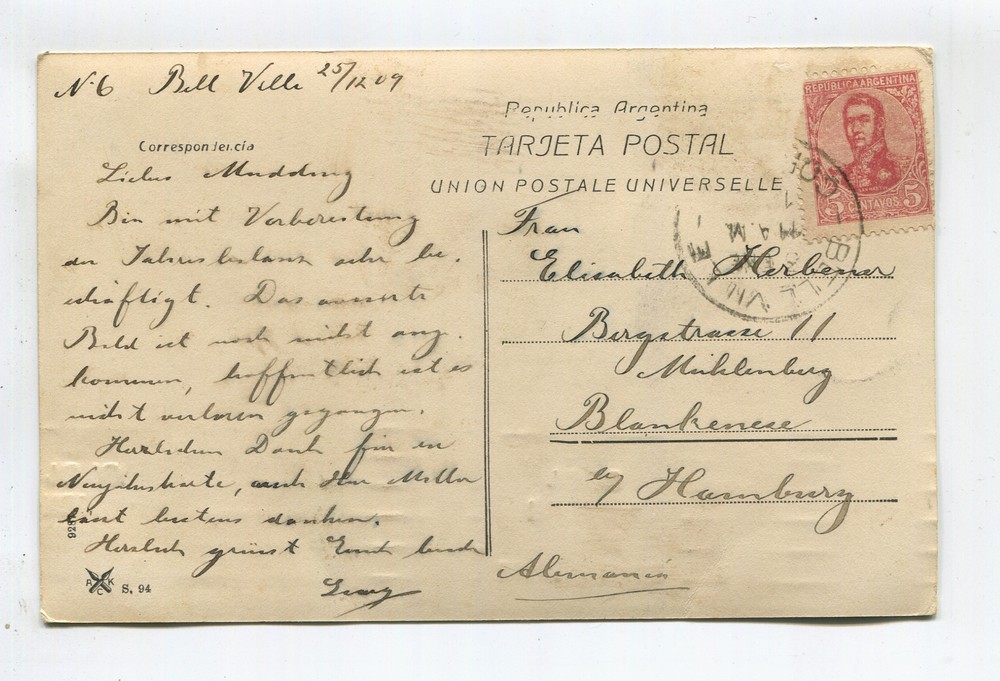 N. 6 Bell Ville 25/12 09
Republica Argentina
TARJETA POSTAL
UNION POSTALE UNIVERSELLE
Correspondencia
REPUBLICA ARGENTINA
5 CENTAVOS 5
Liebes
Bin mit Vorbereitung
der Jahresbilanz sehr be-
schäftigt. Das avisierte
Bild ist noch nicht ange-
kommen, hoffentlich ist es
nicht verloren gegangen.
Herzlichen Dank für
Neujahrskarte, auch Herr
lässt bestens danken.
Herzlich grüsst
Frau
Elisabeth Herbener
Bergstrasse 11
Mühlenberg
Blankenese
b/ Hamburg
Alemania
BELL VILLE
R K C S. 94